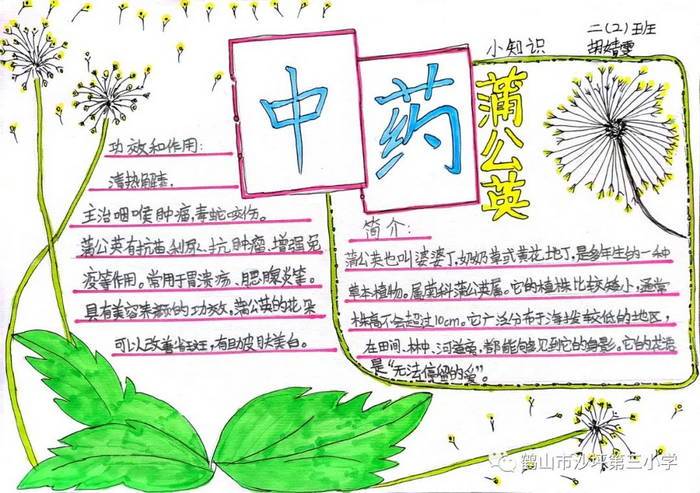 小知识
二(2)班
胡婧雯
中药
蒲公英
功效和作用:
清热解毒,
主治咽喉肿痛,毒蛇咬伤。
蒲公英有抗菌、利尿、抗肿瘤、增强免
疫等作用。常用于胃溃疡、腮腺炎等。
具有美容养颜的功效,蒲公英的花朵
可以改善雀斑,有助皮肤美白。
简介:
蒲公英也叫婆婆丁,奶奶草或黄花地丁,是多年生的一种
草本植物。属菊科蒲公英属。它的植株比较矮小,通常
株高不会超过10cm。它广泛分布于海拔较低的地区,
在田间、林中、河道旁,都能够见到它的身影。它的花语
是“无法停留的爱”。
鹤山市沙坪第三小学